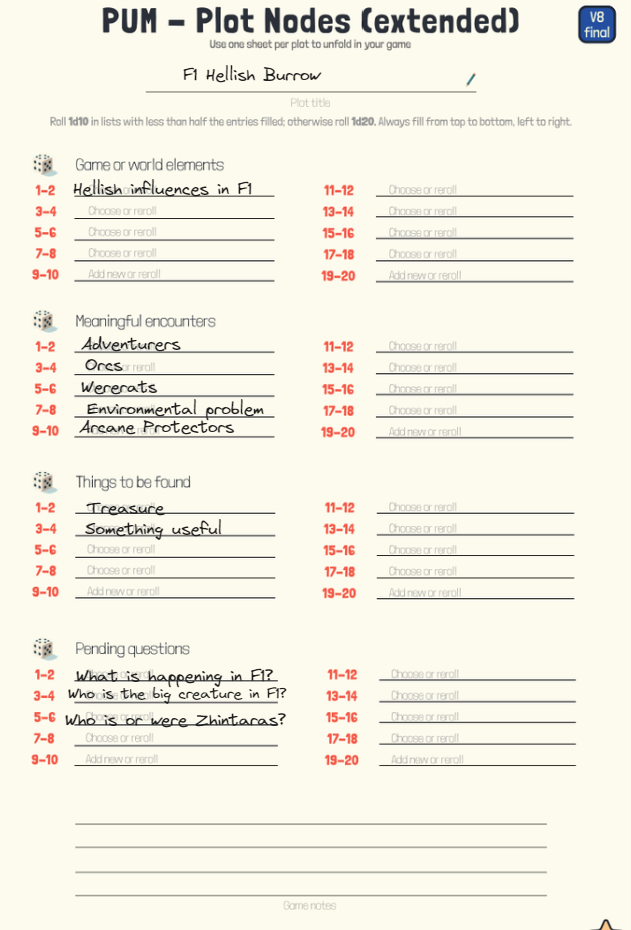 PUM – Plot Nodes (extended)
V8
final
Use one sheet per plot to unfold in your game
F1 Hellish Burrow
Plot title
Roll 1d10 in lists with less than half the entries filled; otherwise roll 1d20. Always fill from top to bottom, left to right.
Game or world elements
1–2 Hellish influences in F1 11–12 Choose or reroll
3–4 Choose or reroll 13–14 Choose or reroll
5–6 Choose or reroll 15–16 Choose or reroll
7–8 Choose or reroll 17–18 Choose or reroll
9–10 Add new or reroll 19–20 Add new or reroll
Meaningful encounters
1–2 Adventurers 11–12 Choose or reroll
3–4 Orcs or reroll 13–14 Choose or reroll
5–6 Wererats 15–16 Choose or reroll
7–8 Environmental problem 17–18 Choose or reroll
9–10 Arcane Protectors 19–20 Add new or reroll
Things to be found
1–2 Treasure 11–12 Choose or reroll
3–4 Something useful 13–14 Choose or reroll
5–6 Choose or reroll 15–16 Choose or reroll
7–8 Choose or reroll 17–18 Choose or reroll
9–10 Add new or reroll 19–20 Add new or reroll
Pending questions
1–2 What is happening in F1? 11–12 Choose or reroll
3–4 Who is the big creature in F1? 13–14 Choose or reroll
5–6 Who is or were Zhintaras? 15–16 Choose or reroll
7–8 Choose or reroll 17–18 Choose or reroll
9–10 Add new or reroll 19–20 Add new or reroll
Game notes